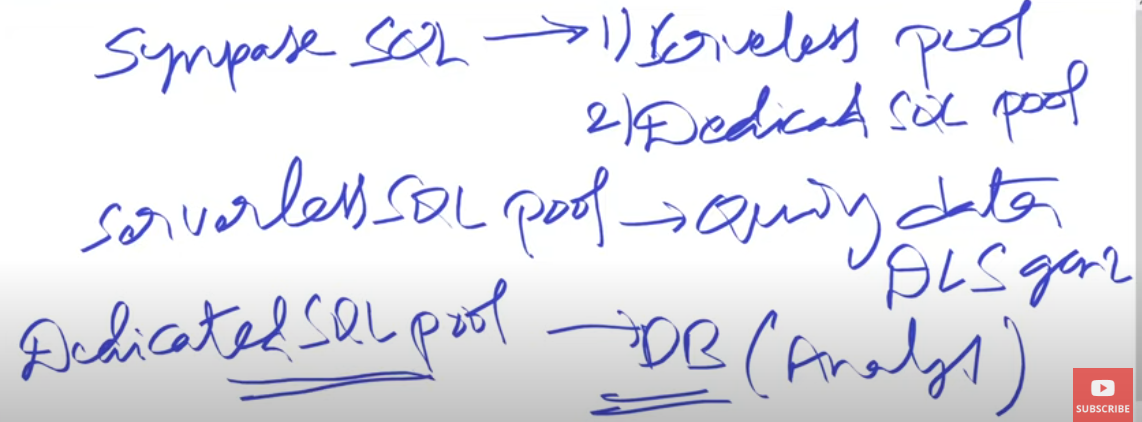 Synpase SQL → 1) Serverless pool
2) Dedicated SQL pool
Serverless SQL pool → Query data
DLS gen2
Dedicated SQL pool → DB (Analyst)
SUBSCRIBE